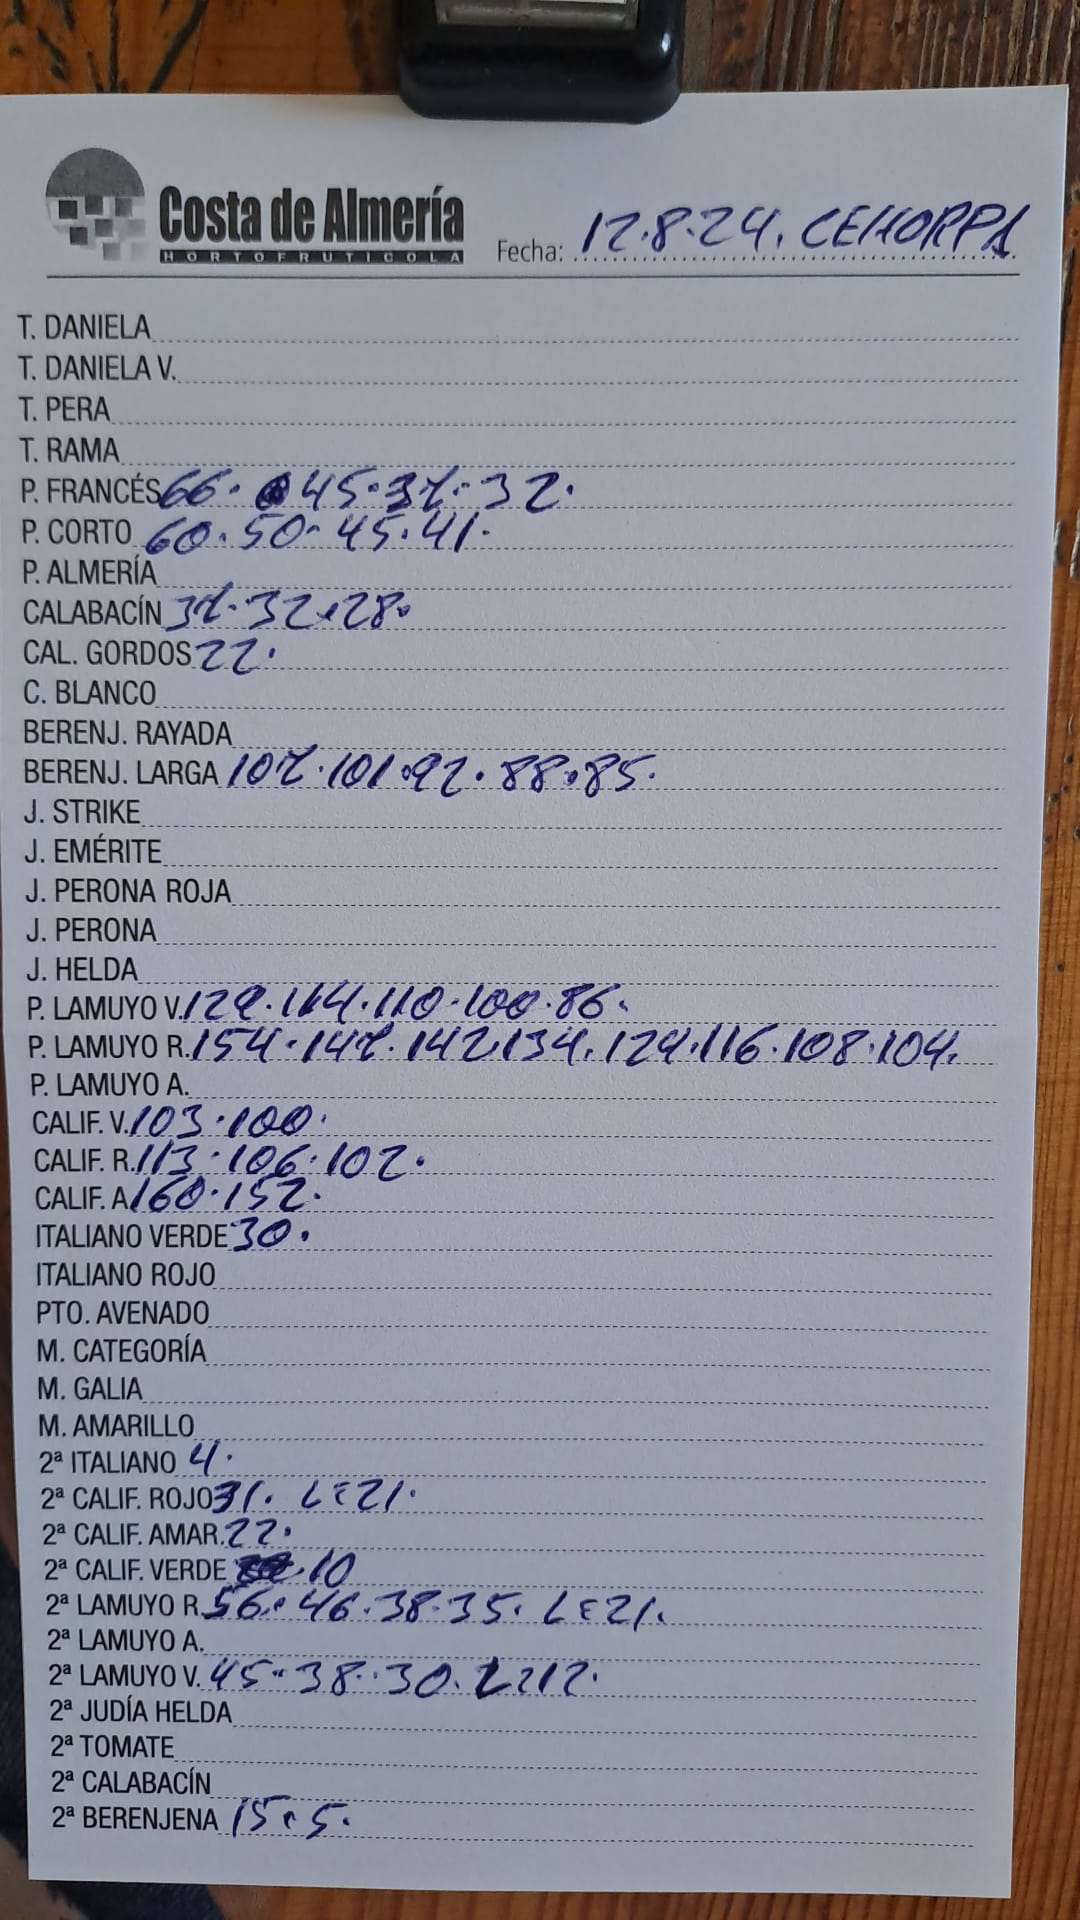 Costa de Almería
HORTOFRUTICOLA
Fecha: 12.8.24. CEHORPA
T. DANIELA
T. DANIELA V.
T. PERA
T. RAMA
P. FRANCÉS 66. 45.37.32.
P. CORTO 60.50.45.41.
P. ALMERÍA
CALABACÍN 37.32.28.
CAL. GORDOS 22.
C. BLANCO
BERENJ. RAYADA
BERENJ. LARGA 107.101.92.88.85.
J. STRIKE
J. EMÉRITE
J. PERONA ROJA
J. PERONA
J. HELDA
P. LAMUYO V. 129.114.110.100.86.
P. LAMUYO R. 154.147.142.134.129.116.108.104.
P. LAMUYO A.
CALIF. V. 103.100.
CALIF. R. 113.106.102.
CALIF. A 160.152.
ITALIANO VERDE 30.
ITALIANO ROJO
PTO. AVENADO
M. CATEGORÍA
M. GALIA
M. AMARILLO
2ª ITALIANO 4.
2ª CALIF. ROJO 31. L=21.
2ª CALIF. AMAR. 22.
2ª CALIF. VERDE 10
2ª LAMUYO R. 56.46.38.35. L=21.
2ª LAMUYO A.
2ª LAMUYO V. 45.38.30. L=12.
2ª JUDÍA HELDA
2ª TOMATE
2ª CALABACÍN
2ª BERENJENA 15.5.